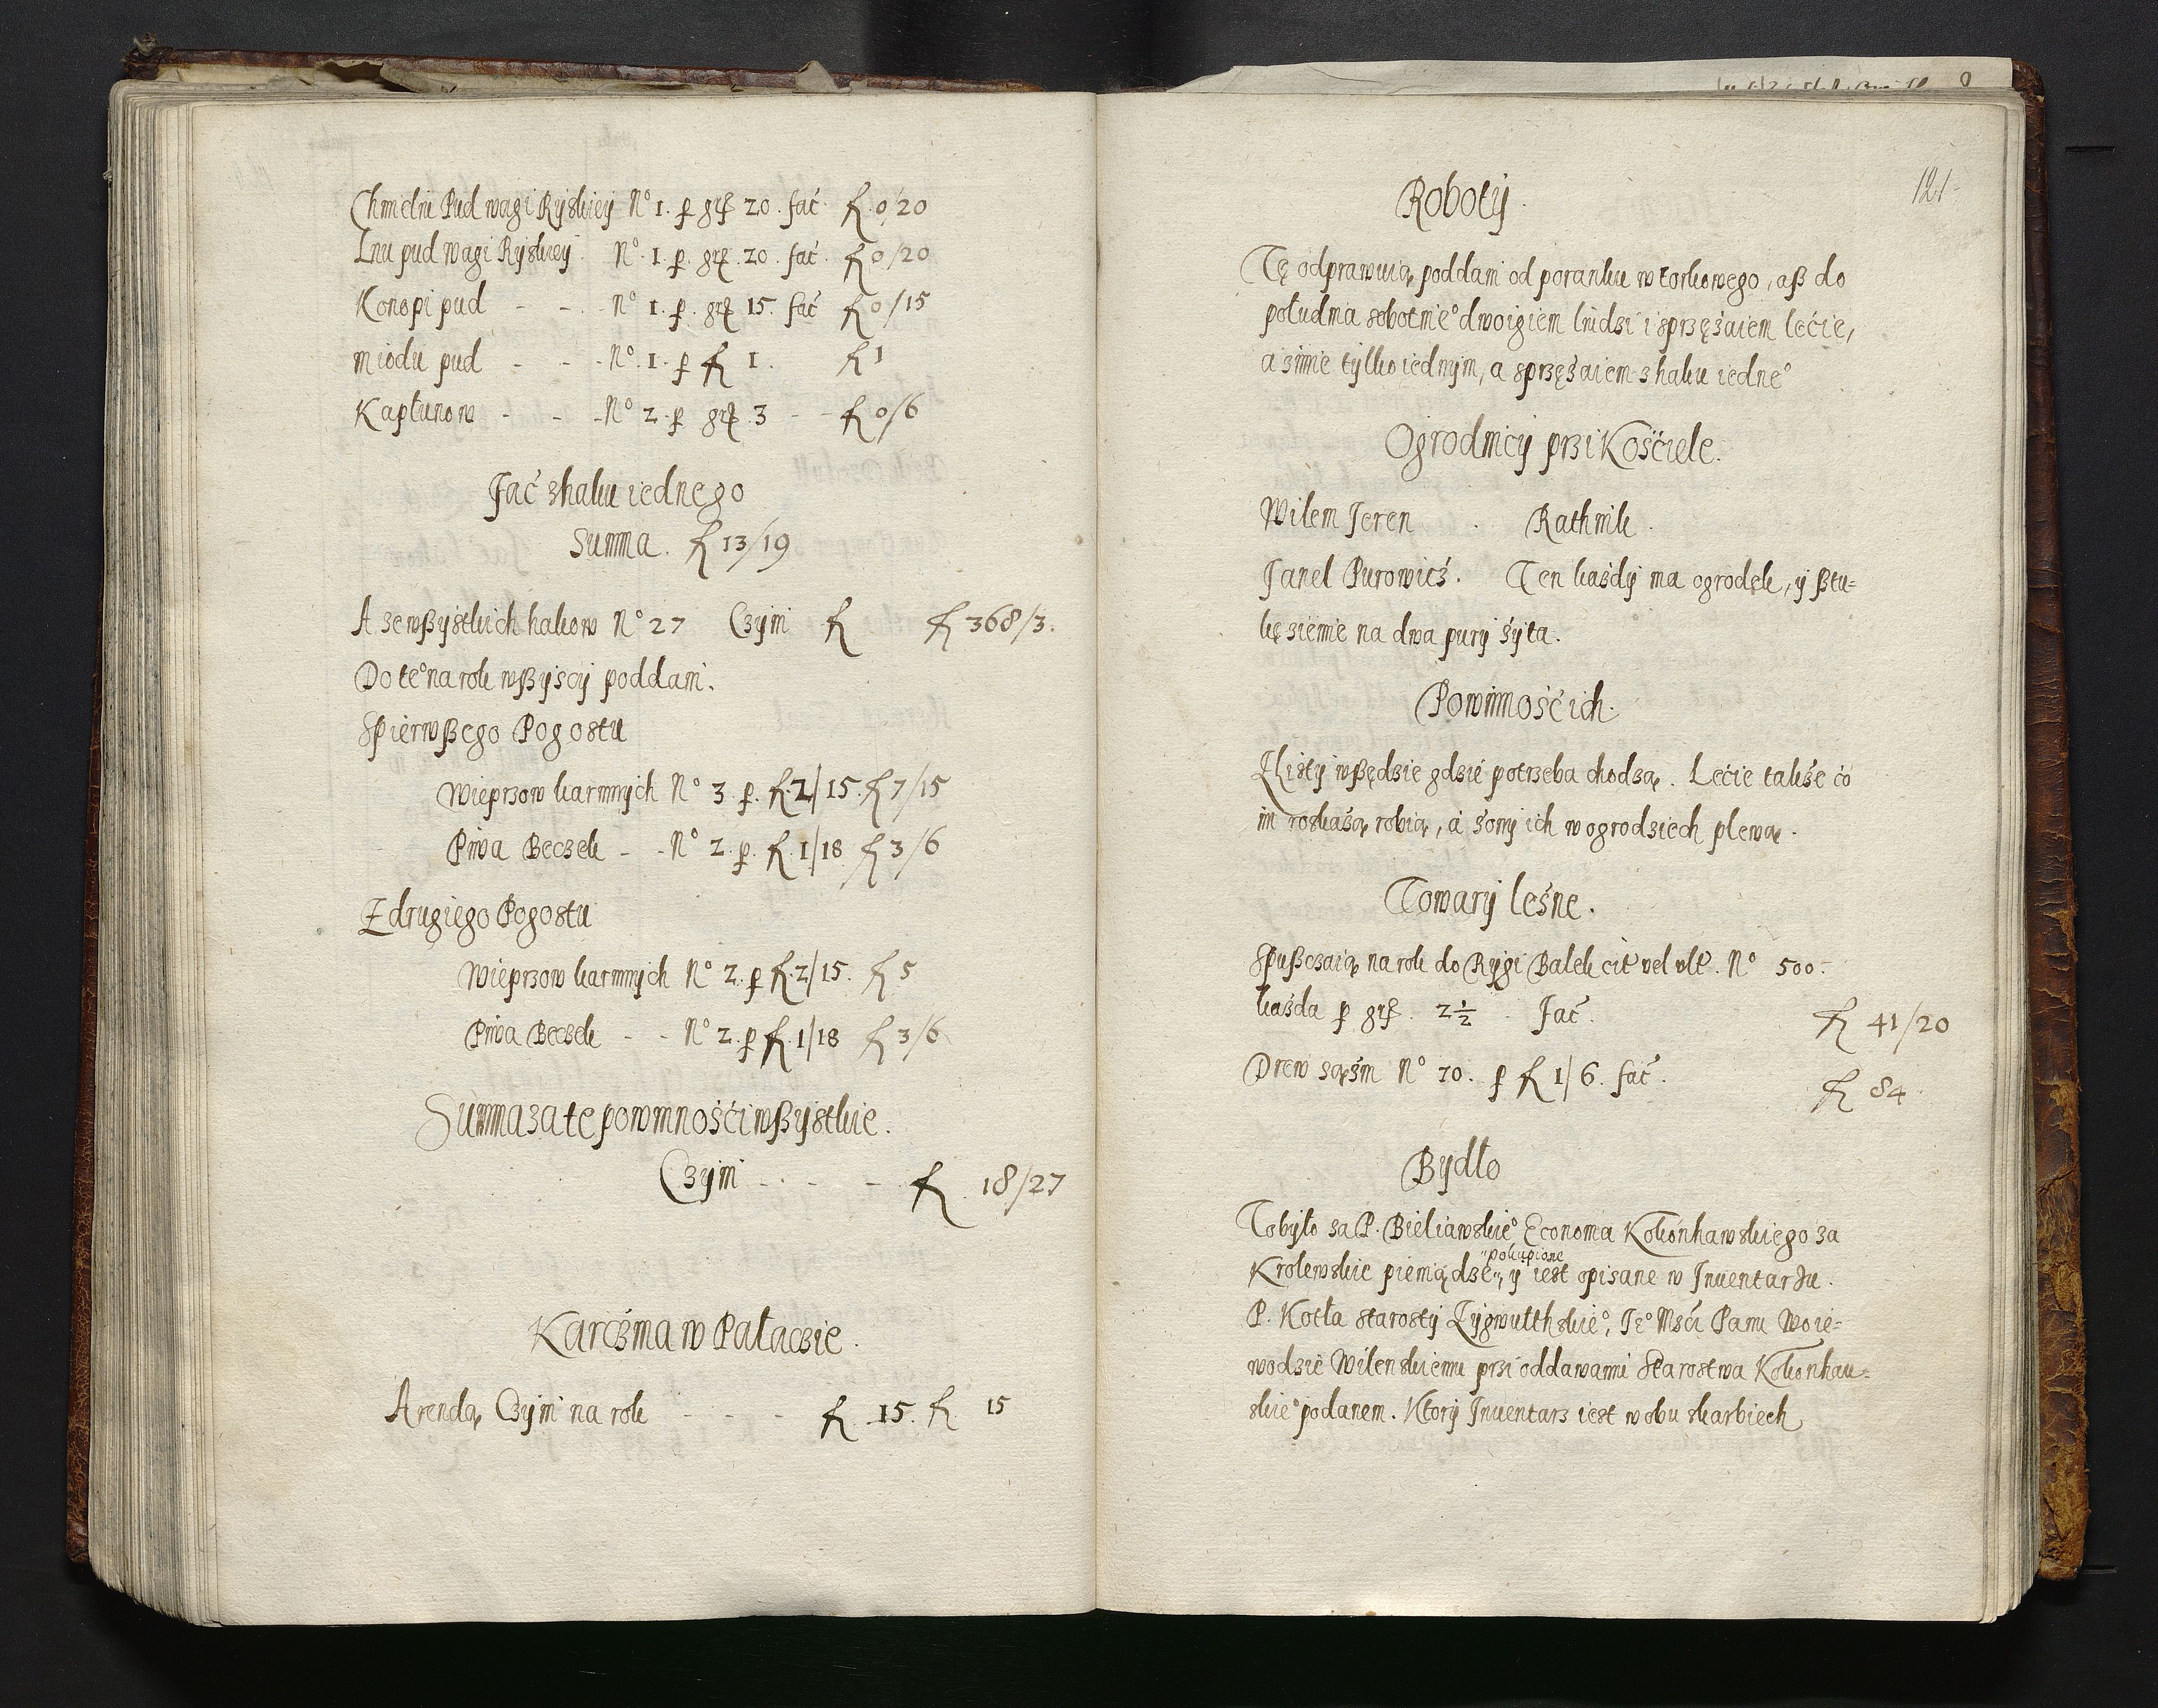 Chmelu Pud wagi Ryskiey N° 1. p grß 20. fać fl 0/20
Lnu pud wagi Ryskiey N° 1. p. grß. 20. fać. fl 0/20
Konopi pud - - - N° 1. p. grß 15. fać fl 0/15
miodu pud - - - N°. 1. p fl 1. fl 1
Kapłunow - - - N° 2. p grß 3 - - fl 0/6
Fać z haku iednego
Summa. fl 13/19
A ze wßystkich hakow N° 27 Czyni fl fl 368/3.
Do te° na rok wßyscy poddani.
Spierwßego Pogostu
Wieprzow karmnych N° 3. p. fl. 2/15. fl 7/15
Piwa Beczek - - N° 2. p. fl. 1/18 fl 3/6
Z drugiego Pogostu
Wieprzow karmnych N° 2. p fl. 2/15. fl 5
Piwa Beczek - - N° 2. p fl. 1/18 fl 3/6
Summa za te powinnośći wßystkie.
Czyni - - - - fl 18/27
Karczma w Pałaczie.
Arendą Czyni na rok - - - - fl 15. fl 15
121
Roboty.
Tę odprawuią poddani od poranku wtorkowego, aß do
południa sobotnie° dwoigiem ludzi i sprzężaiem lećie,
a zimie tylko iednym, a sprzężaiem z haku iedne°
Ogrodnicy przi Kośćiele.
Wilem Jeren . Rathnik.
Janel Purowicz. Ten każdy ma ogrodek, y ßtu-
kę ziemie na dwa pury żyta.
Powinność ich.
Z listy wßędzie gdzie potrzeba chodzą. Lećie także co
im roskażą robią, a żony ich w ogrodziech plewą.
Towary leśne.
Spußczaią na rok do Rygi Balek cit vel vlt. N° 500.
każda p grß. 2½. Fać. fl 41/20
Drew sążni N° 70. p fl 1/6. fać. fl 84
Bydło
To było za P. Bieliawskie° Economa Kokonhawskiego za
pokupione
Krolewskie pieniądze, y iest opisane w Inuentarzu.
P. Kotła starosty Zygwulthskie°, Je° Mśći Panu Woie-
wodzie Wilenskiemu przi oddawaniu Starostwa Kokonhau-
skie° podanem. Ktory Inuentarz iest w obu skarbiech